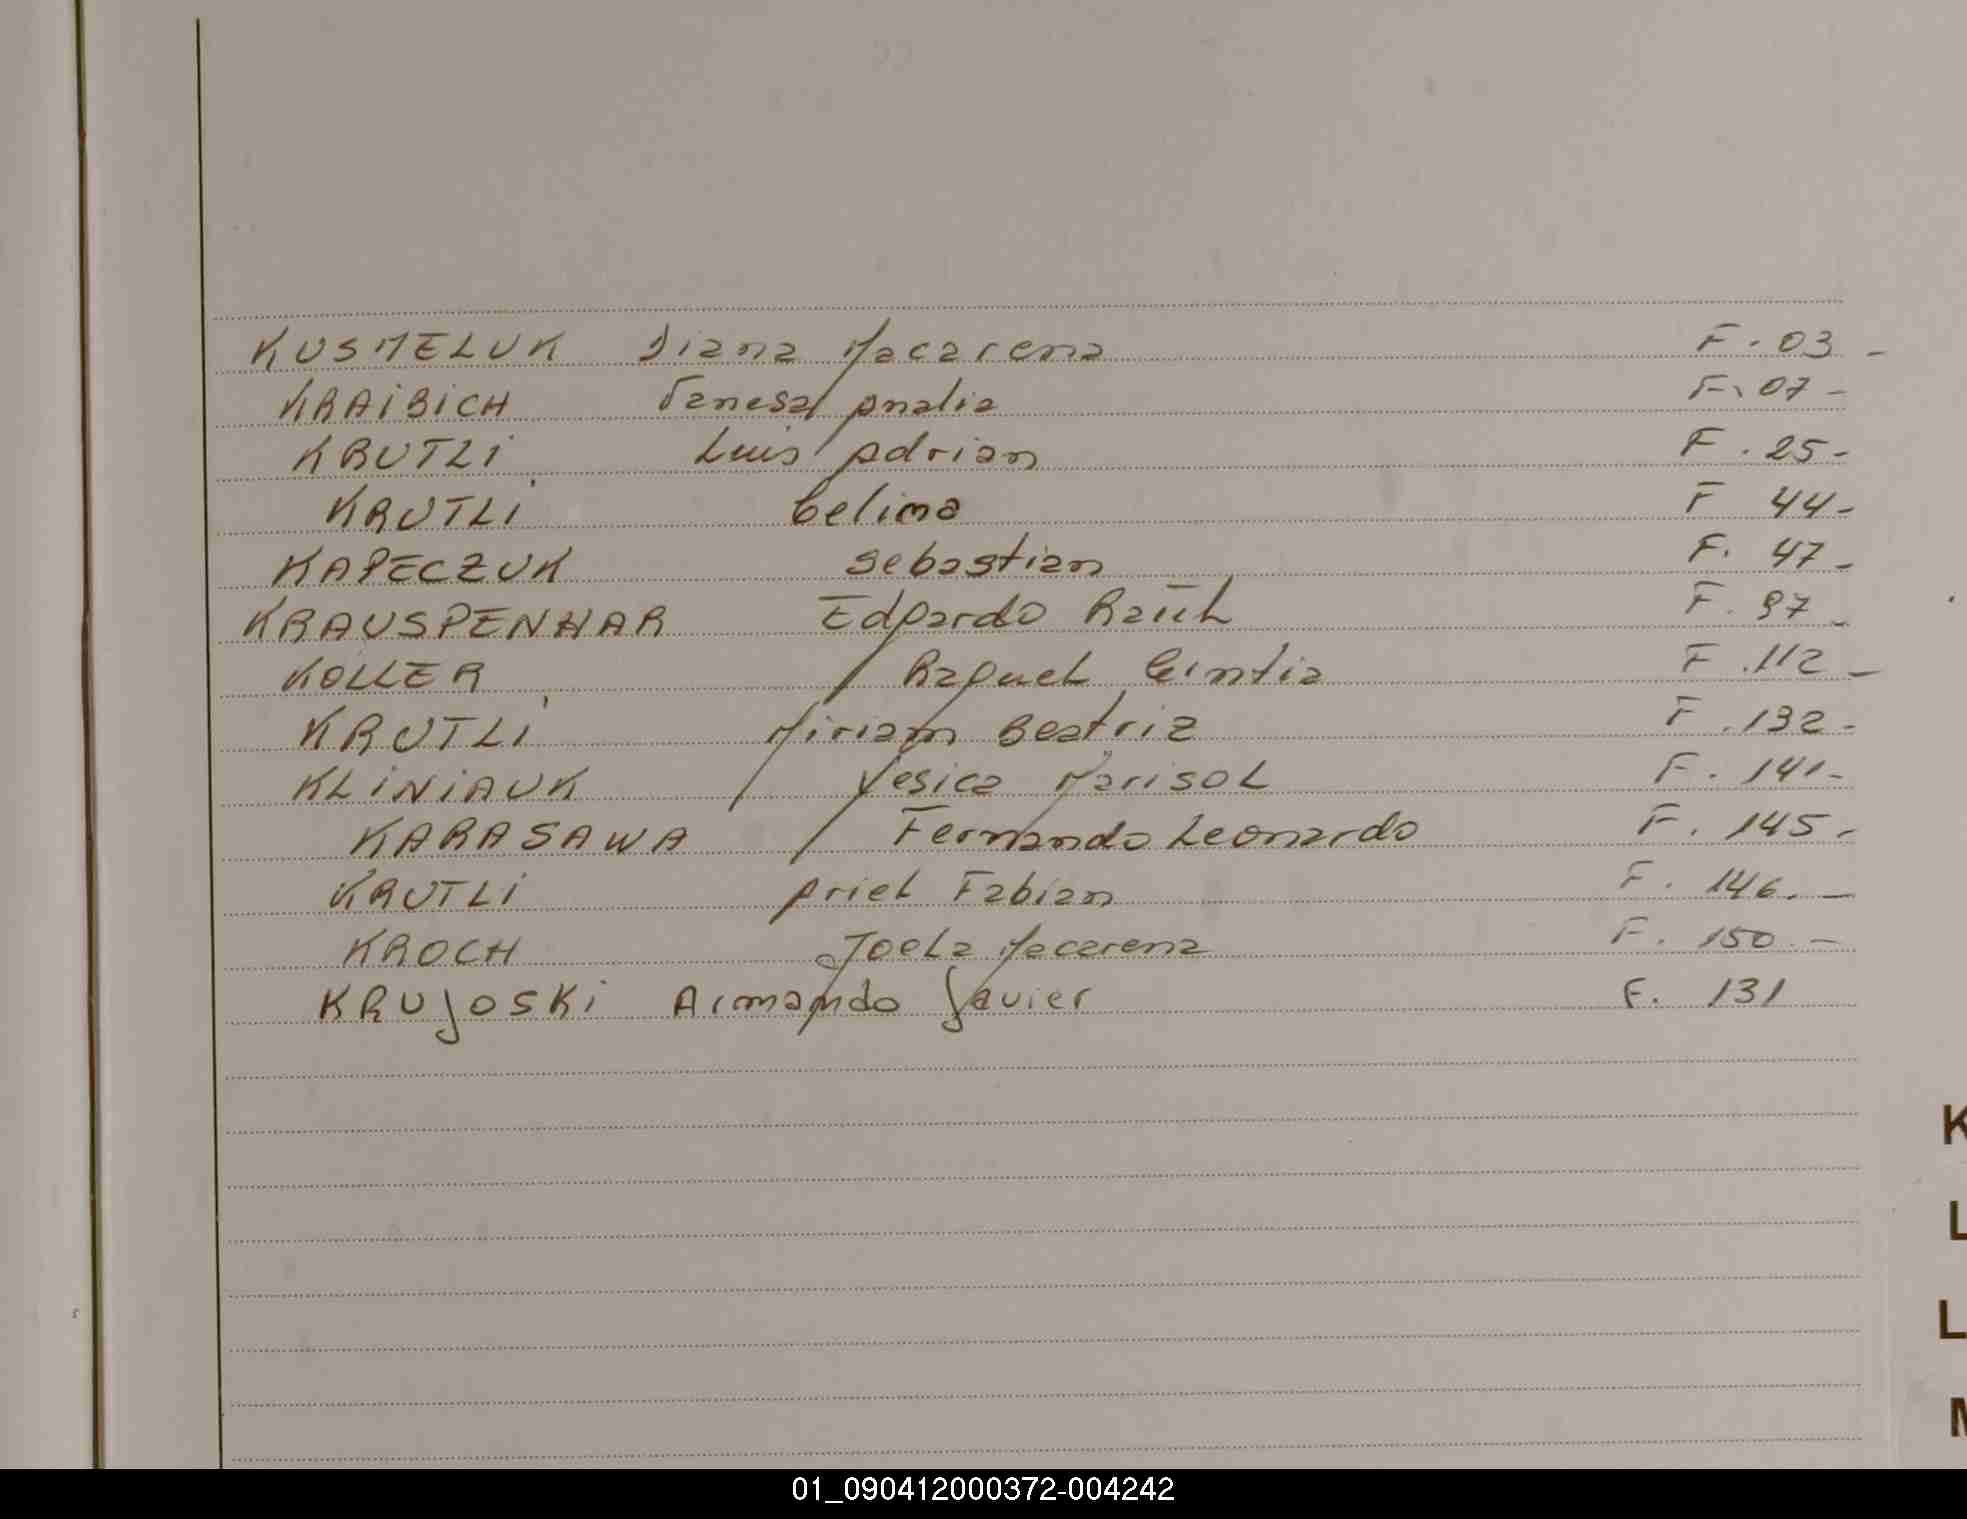 KUSMELUK Diana Macarena F. 03 -
KRAIBICH Vanesa Analia F. 07 -
KRUTLI Luis Adrian F. 25 -
KRUTLI Celina F 44 -
KAPECZUK Sebastian F. 47 -
KRAUSPENHAR Edgardo Raúl F. 97 -
KOLLER Raquel Cintia F. 112 -
KRUTLI Miriam Beatriz F. 132 -
KLINIAUK Yesica Marisol F. 141 -
KARASAWA Fernando Leonardo F. 145 -
KRUTLI Ariel Fabian F. 146. -
KROCH Joela Macarena F. 150. -
KRUJOSKI Armando Javier F. 131
K
L
L
M
01_090412000372-004242